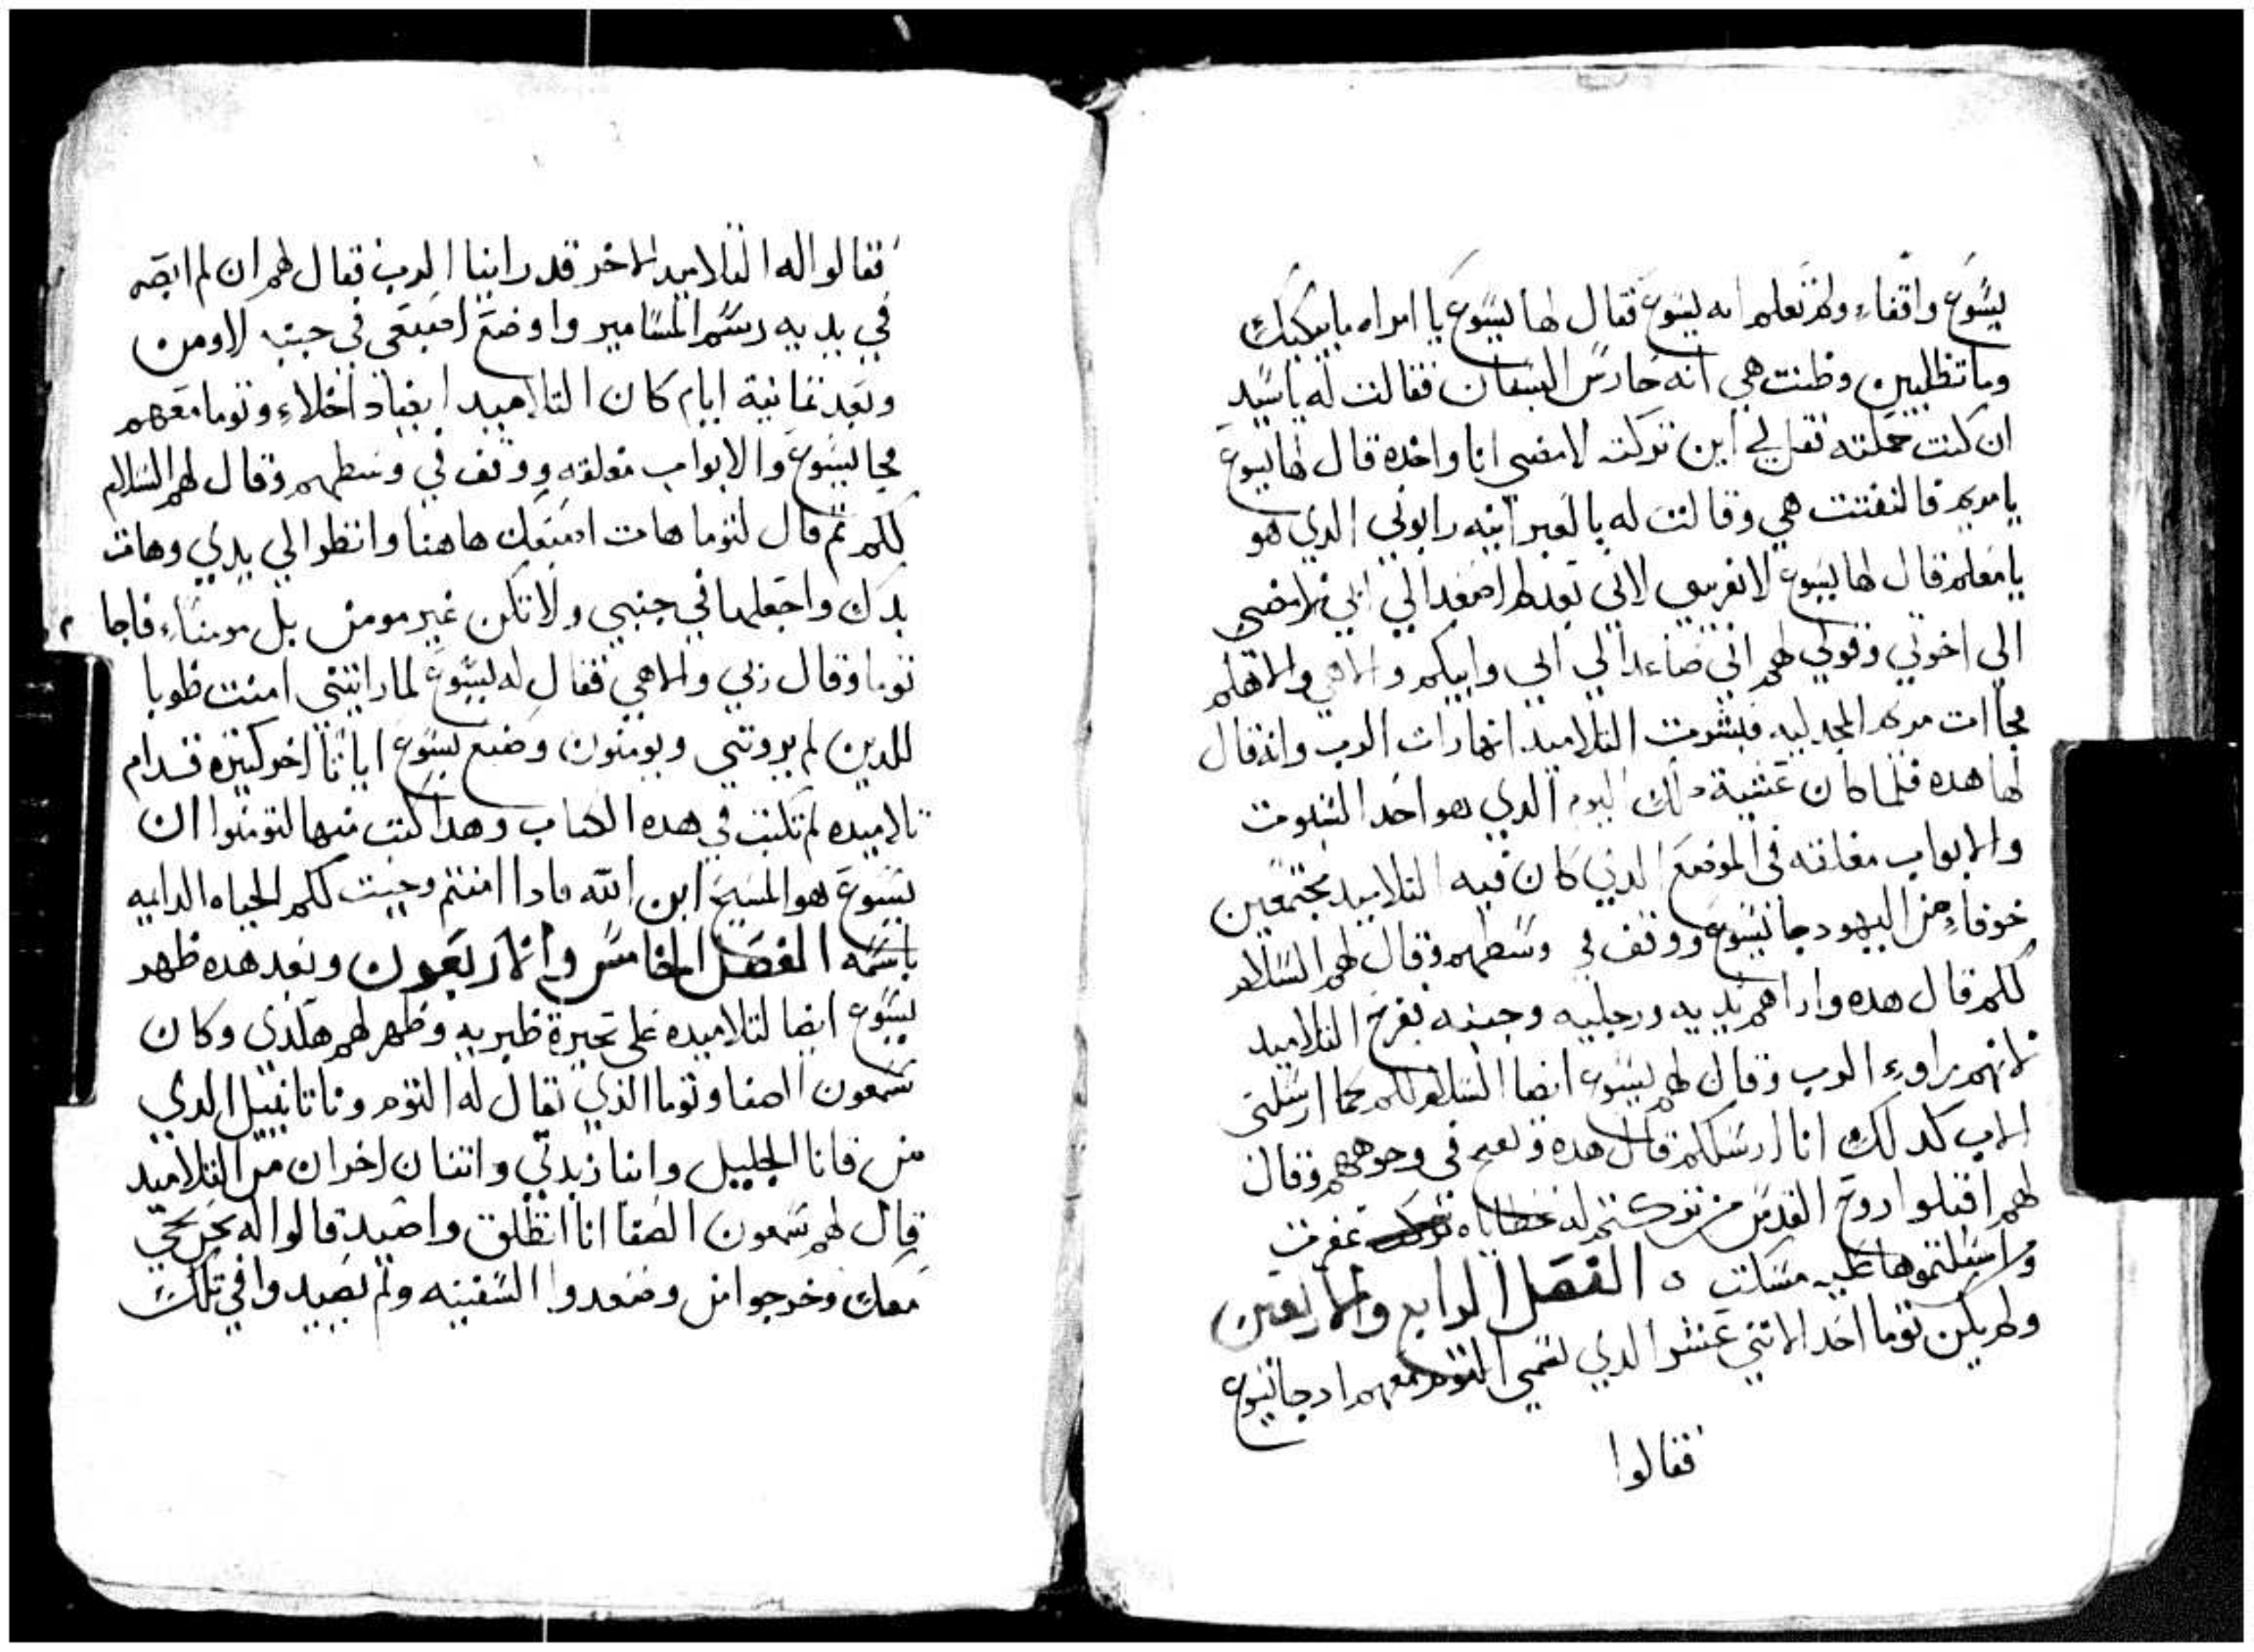 يسوع واقفاء ولم تعلم انه يسوع فقال لها يسوع يا امراه ما يبكيك
وما تطلبين وظنت هي انه حارس البستان فقالت له يا سيد
ان كنت حملته فقل لي اين تركته لامضي انا واخده قال لها يسوع
يا مريم فالتفتت هي وقالت له بالعبرانيه رابوني الدي هو
يا معلم قال لها يسوع لا تقربيني لاني بعد لم اصعد الي ابي امضي
الي اخوتي وقولي لهم اني صاعد الي ابي وابيكم والاهي والاهكم
فجاات مريم المجدليه فبشرت التلاميد انها رات الرب وانه قال
لها هده فلما كان عشية دلك اليوم الدي هو احد السبوت
والابواب مغلقه في الموضع الدي كان فيه التلاميد مجتمعين
خوفاء من اليهود جا يسوع ووقف في وسطهم وقال لهم السلام
لكم قال هده واراهم يديه ورجليه وجنبه ففرح التلاميد
لانهم راوء الرب وقال لهم يسوع ايضا السلام لكم كما ارسلني
الاب كدلك انا ارسلكم قال هده ونفخ في وجوههم وقال
لهم اقبلوا روح القدس من تركتم له خطاياه غفرت
ومن امسكتموها عليه مسكت ه الفصل الرابع والاربعين
ولم يكن توما احد الاتني عشر الدي يسمي التوم معهم اد جا يسوع
فقالوا
فقالوا له التلاميد الاخر قد راينا الرب فقال لهم ان لم ابصر
في يديه رسم المسامير واوضع اصبعي في جنبه لا اومن
وبعد تمانية ايام كان التلاميد ايضاد اخلاء وتوما معهم
فجا يسوع والابواب مغلقه ووقف في وسطهم وقال لهم السلام
لكم تم قال لتوما هات اصبعك هاهنا وانظر الي يدي وهات
يدك واجعلها في جنبي ولا تكن غير مومن بل مومناء فاجا
توما وقال ربي والاهي فقال له يسوع لما رايتني امنت طوبا
للدين لم يروني ويومنون وصنع يسوع اياتا اخر كتيره قدام
تلاميده لم تكتب في هده الكتاب وهدا كتب منها لتومنوا ان
يسوع هو المسيح ابن الله فادا امنتم وجبت لكم الحياه الدايمه
باسمه الفصل الخامس والاربعون وبعد هده ظهر
يسوع ايضا لتلاميده علي بحيرة طبريه وظهر لهم هكدي وكان
شمعون الصفا وتوما الذي يقال له التوم وناتانييل الدي
من قانا الجليل وابنا زبدي واتنان اخران من التلاميد
قال لهم شمعون الصفا انا انطلق واصيد قالوا له نحن نجي
معك وخرجوا من وصعدوا السفينه ولم يصيدوا في تلك